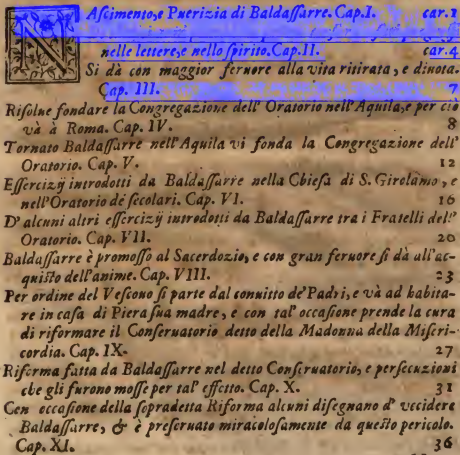 NAſcimento, e Puerizia di Baldaſſarre. Cap. I. car. 1
nelle lettere, e nello ſpirito. Cap. II. car. 4
Si dà con maggior feruore alla vita ritirata, e diuota.
Cap. III. 7
Riſolue fondare la Congregazione dell' Oratorio nell' Aquila, e per ciò
và à Roma. Cap. IV. 8
Tornato Baldaſſarre nell' Aquila vi fonda la Congregazione dell'
Oratorio. Cap. V. 12
Eſſercizÿ introdotti da Baldaſſarre nella Chieſa di S. Girolamo, e
nell' Oratorio de' ſecolari. Cap. VI. 16
D' alcuni altri eſſercizÿ introdotti da Baldaſſarre tra i Fratelli dell'
Oratorio. Cap. VII. 20
Baldaſſarre è promoſſo al Sacerdozio, e con gran feruore ſi dà all' ac-
quiſto dell' anime. Cap. VIII. 23
Per ordine del Veſcouo ſi parte dal conuitto de' Padri, e và ad habita-
re in caſa di Piera ſua madre, e con tal' occaſione prende la cura
di riformare il Conſeruatorio detto della Madonna della Miſeri-
cordia. Cap. IX. 27
Riforma fatta da Baldaſſarre nel detto Conſeruatorio, e perſecuzioni
che gli furono moſſe per tal' effetto. Cap. X. 31
Con occaſione della ſopradetta Riforma alcuni diſegnano d' vccidere
Baldaſſarre, & è preſeruato miracoloſamente da queſto pericolo.
Cap. XI. 36